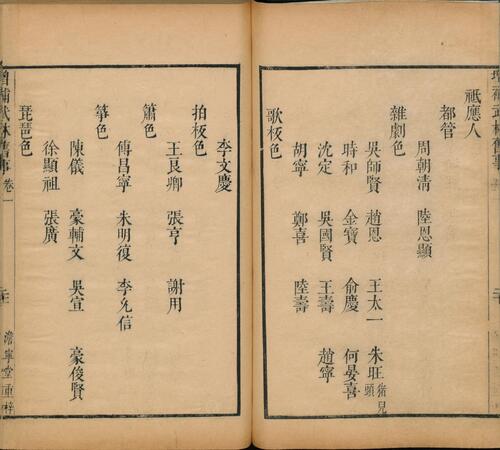 祗應人
都管
周朝清 陸恩顯
雜劇色
吳師賢 趙恩 王太一 朱旺 猪兒頭
時和 金寶 俞慶 何晏喜
沈定 吳國賢 王壽 趙寧
胡寧 鄭喜 陸壽
歌板色
李文慶
拍板色
王良卿 張亨 謝用
簫色
傅昌寧 朱明復 李允信
箏色
陳儀 豪輔文 吳宣 豪俊賢
徐顯祖 張廣
琵琶色
增補武林舊事 卷一 澹寧堂重梓